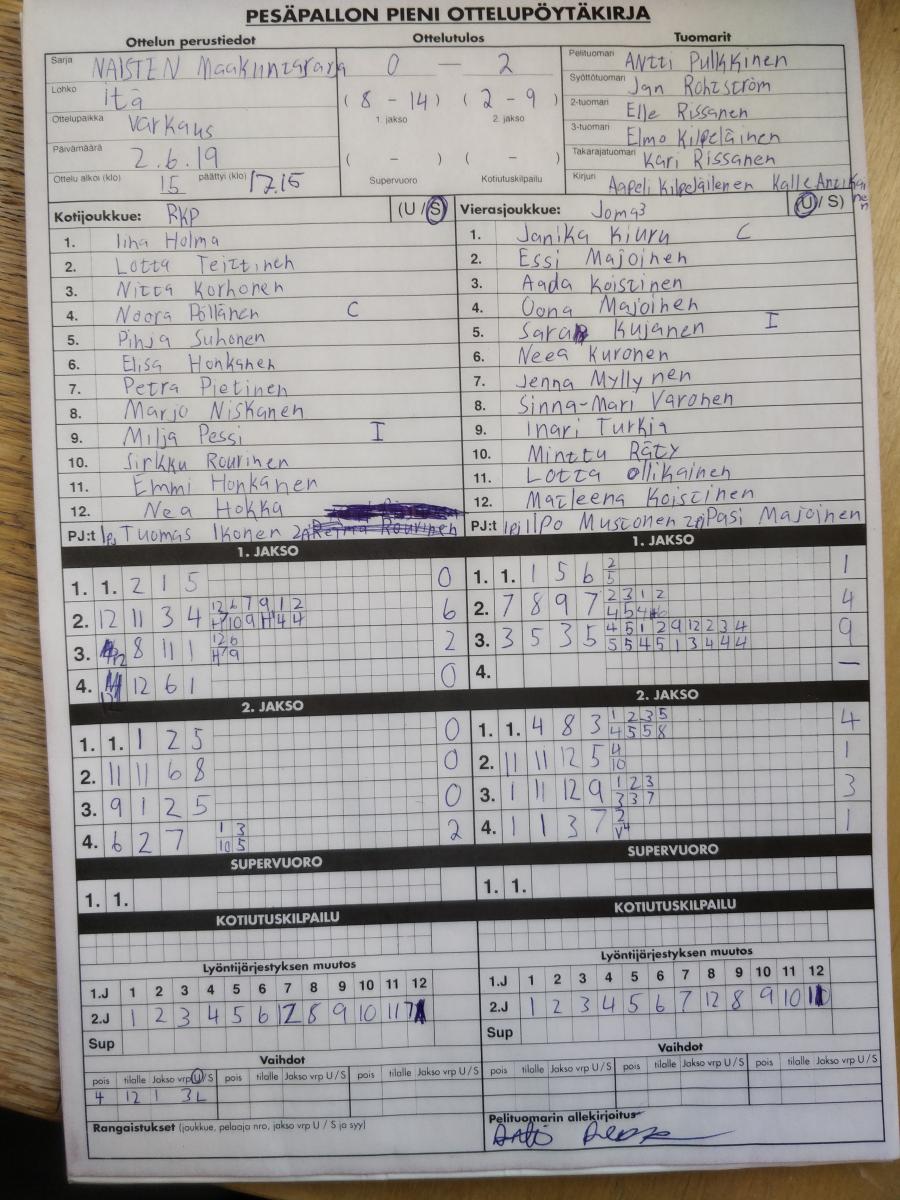 PESÄPALLON PIENI OTTELUPÖYTÄKIRJA
Ottelun perustiedot Ottelutulos Tuomarit
Sarja NAISTEN Maakuntasarja
Lohko itä
Ottelupaikka Varkaus
Päivämäärä 2.6.19
Ottelu alkoi (klo) 15 päättyi (klo) 17.15
0 — 2
( 8 - 14 ) ( 2 - 9 )
1. jakso 2. jakso
( - ) ( - )
Supervuoro Kotiutuskilpailu
Pelituomari Antti Pulkkinen
Syöttötuomari Jan Rohtström
2-tuomari Elle Rissanen
3-tuomari Elmo Kilpeläinen
Takarajatuomari Kari Rissanen
Kirjuri Aapeli Kilpeläilenen Kalle
Kotijoukkue: RKP (U / S)
1. Iina Holma
2. Lotta Teittinen
3. Nitta Korhonen
4. Noora Pöllänen C
5. Pinja Suhonen
6. Elisa Honkanen
7. Petra Pietinen
8. Marjo Niskanen
9. Milja Pessi I
10. Sirkku Rourinen
11. Emmi Honkanen
12. Nea Hokka
PJ:t Tuomas Ikonen
Vierasjoukkue: Joma3 (U / S)
1. Janika Kiuru C
2. Essi Majoinen
3. Aada Koistinen
4. Oona Majoinen
5. Sara Kujanen I
6. Neea Kuronen
7. Jenna Myllynen
8. Sinna-Mari Varonen
9. Inari Turkia
10. Minttu Räty
11. Lotta Ollikainen
12. Matleena Koistinen
PJ:t Ilpo Mustonen Pasi Majoinen
1. JAKSO
1. 1. 2 1 5 0
2. 12 11 3 4 6
3. 8 11 1 2
4. 12 6 1 0
2. JAKSO
1. 1. 1 2 5 0
2. 11 11 6 8 0
3. 9 1 2 5 0
4. 6 2 7 1 3 2
10 5
SUPERVUORO
1. 1.
KOTIUTUSKILPAILU
Lyöntijärjestyksen muutos
1.J 1 2 3 4 5 6 7 8 9 10 11 12
2.J 1 2 3 4 5 6 12 8 9 10 11 7
Sup
Vaihdot
pois tilalle Jakso vrp U / S pois tilalle Jakso vrp U / S pois tilalle Jakso vrp U / S
4 12 1 3L
Rangaistukset (joukkue, pelaaja nro, jakso vrp U / S ja syy)
1. JAKSO
1. 1. 1 5 6 2 1
5
2. 7 8 9 7 2 3 1 2 4
3. 3 5 3 5 4 5 1 2 9 12 2 3 4 9
5 5 4 5 1 3 4 4 4
4. —
2. JAKSO
1. 1. 4 8 3 1 2 3 5 4
4 5 5 8
2. 11 11 12 5 4 1
10
3. 1 11 12 9 1 2 3 3
3 3 7
4. 1 1 3 7 2 1
V4
SUPERVUORO
1. 1.
KOTIUTUSKILPAILU
Lyöntijärjestyksen muutos
1.J 1 2 3 4 5 6 7 8 9 10 11 12
2.J 1 2 3 4 5 6 7 12 8 9 10 11
Sup
Vaihdot
pois tilalle Jakso vrp U / S pois tilalle Jakso vrp U / S pois tilalle Jakso vrp U / S
Pelituomarin allekirjoitus